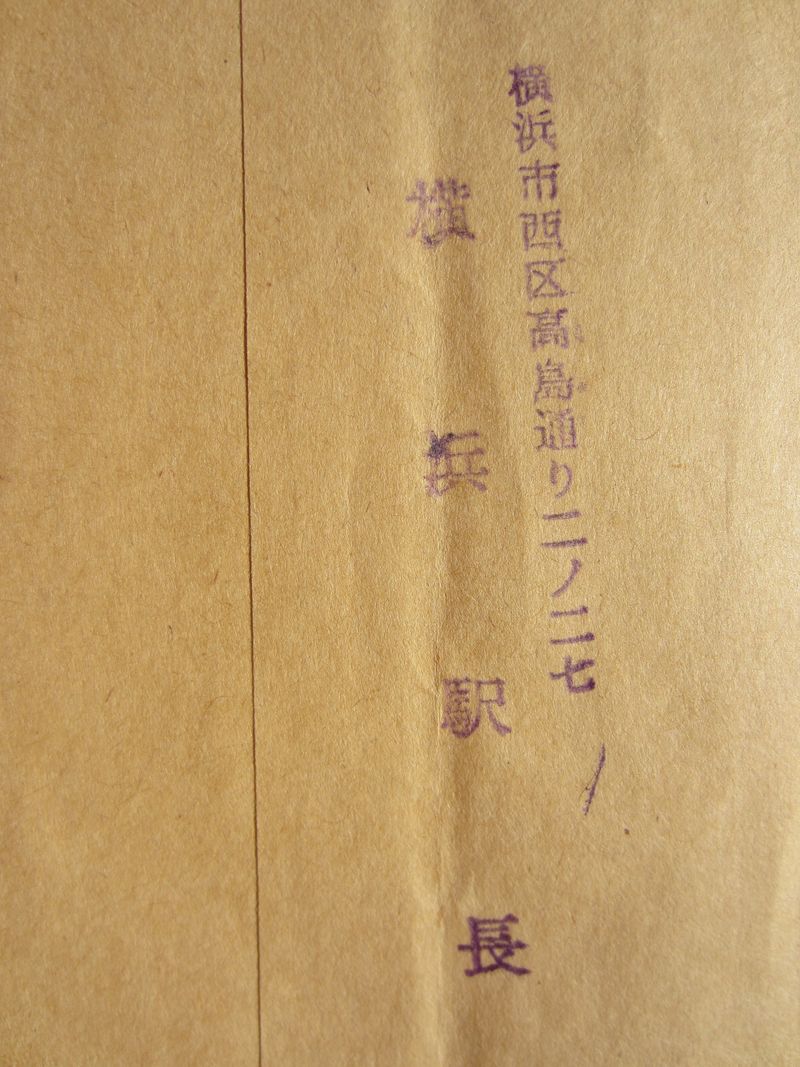 横浜市西区高島通り二ノ二七
横浜駅長